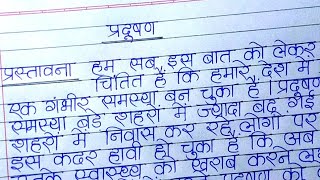 प्रदूषण
प्रस्तावना हम सब इस बात को लेकर
चिंतित हैं कि हमारे देश में
एक गंभीर समस्या बन चुका है। प्रदूषण
समस्या बड़े शहरों में ज्यादा बढ़ गई
शहरों में निवास कर रहे लोगों पर
इस कदर हावी हो चुका है कि अब
स्वास्थ्य को खराब करने